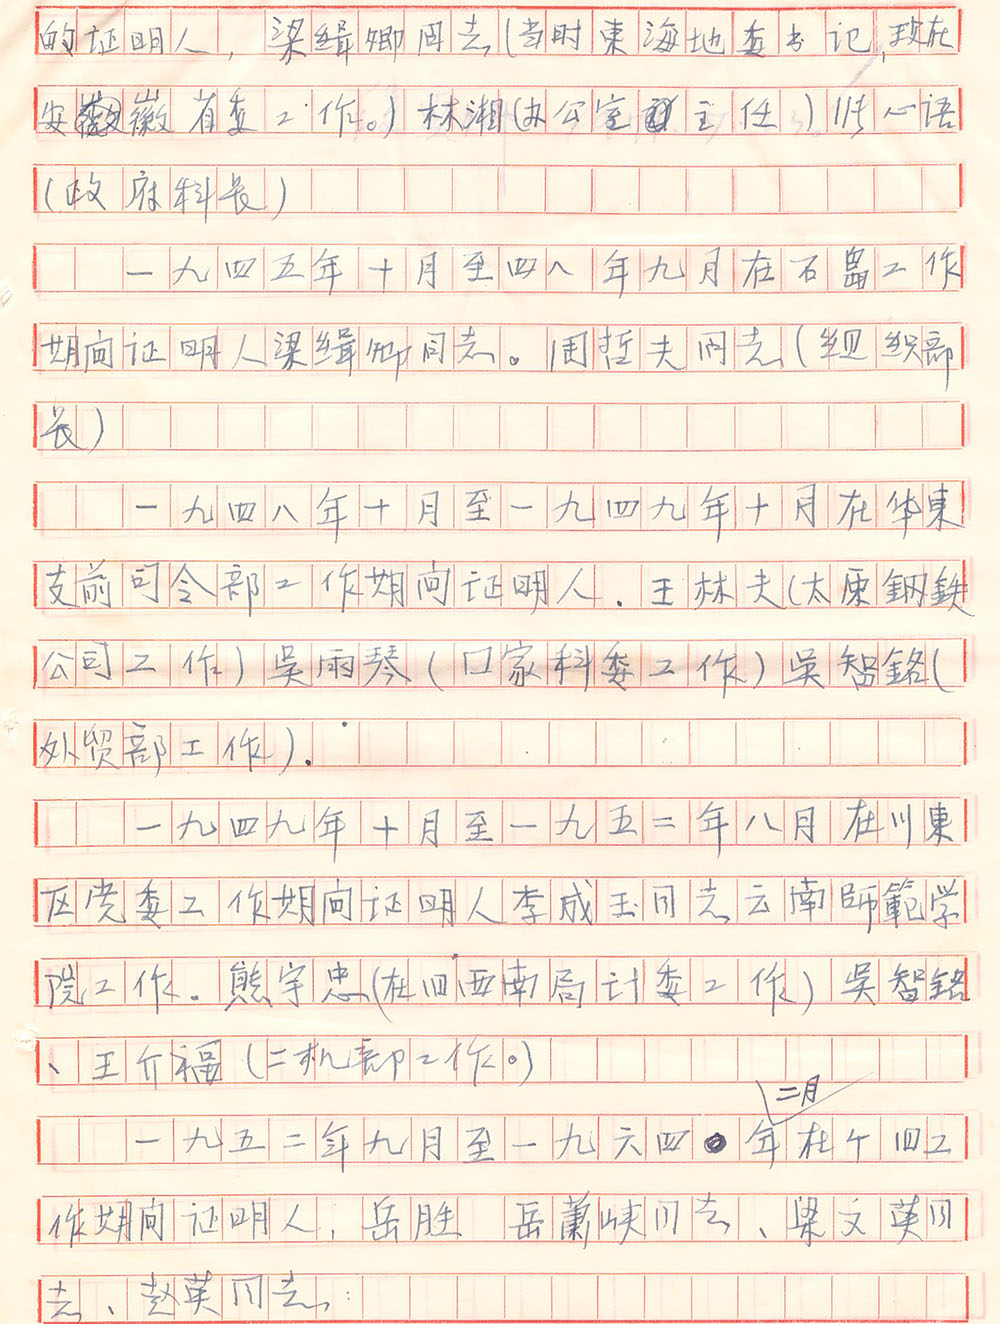 的证明人，梁缉卿同志（当时東海地委书记，现在
安徽省委工作。）林湘（办公室主任）　心语
（政府科长）
一九四五年十月至四八年九月在石岛工作
期间证明人梁缉卿同志。周哲夫同志（组织部
长）
一九四八年十月至一九四九年十月在华東
支前司令部工作期间证明人．王林夫（太原鋼鉄
公司工作）吳雨琴（囗家科委工作）吳智銘（
外贸部工作）．
一九四九年十月至一九五二年八月在川東
区党委工作期间证明人李成玉同志云南師範学
院工作．熊宇忠（在旧西南局计委工作）吳智銘
、王介福（二机部工作。）
二月
一九五二年九月至一九六四年在个旧工
作期间证明人，岳胜　岳萧峡同志、梁文英同
志、赵英同志．